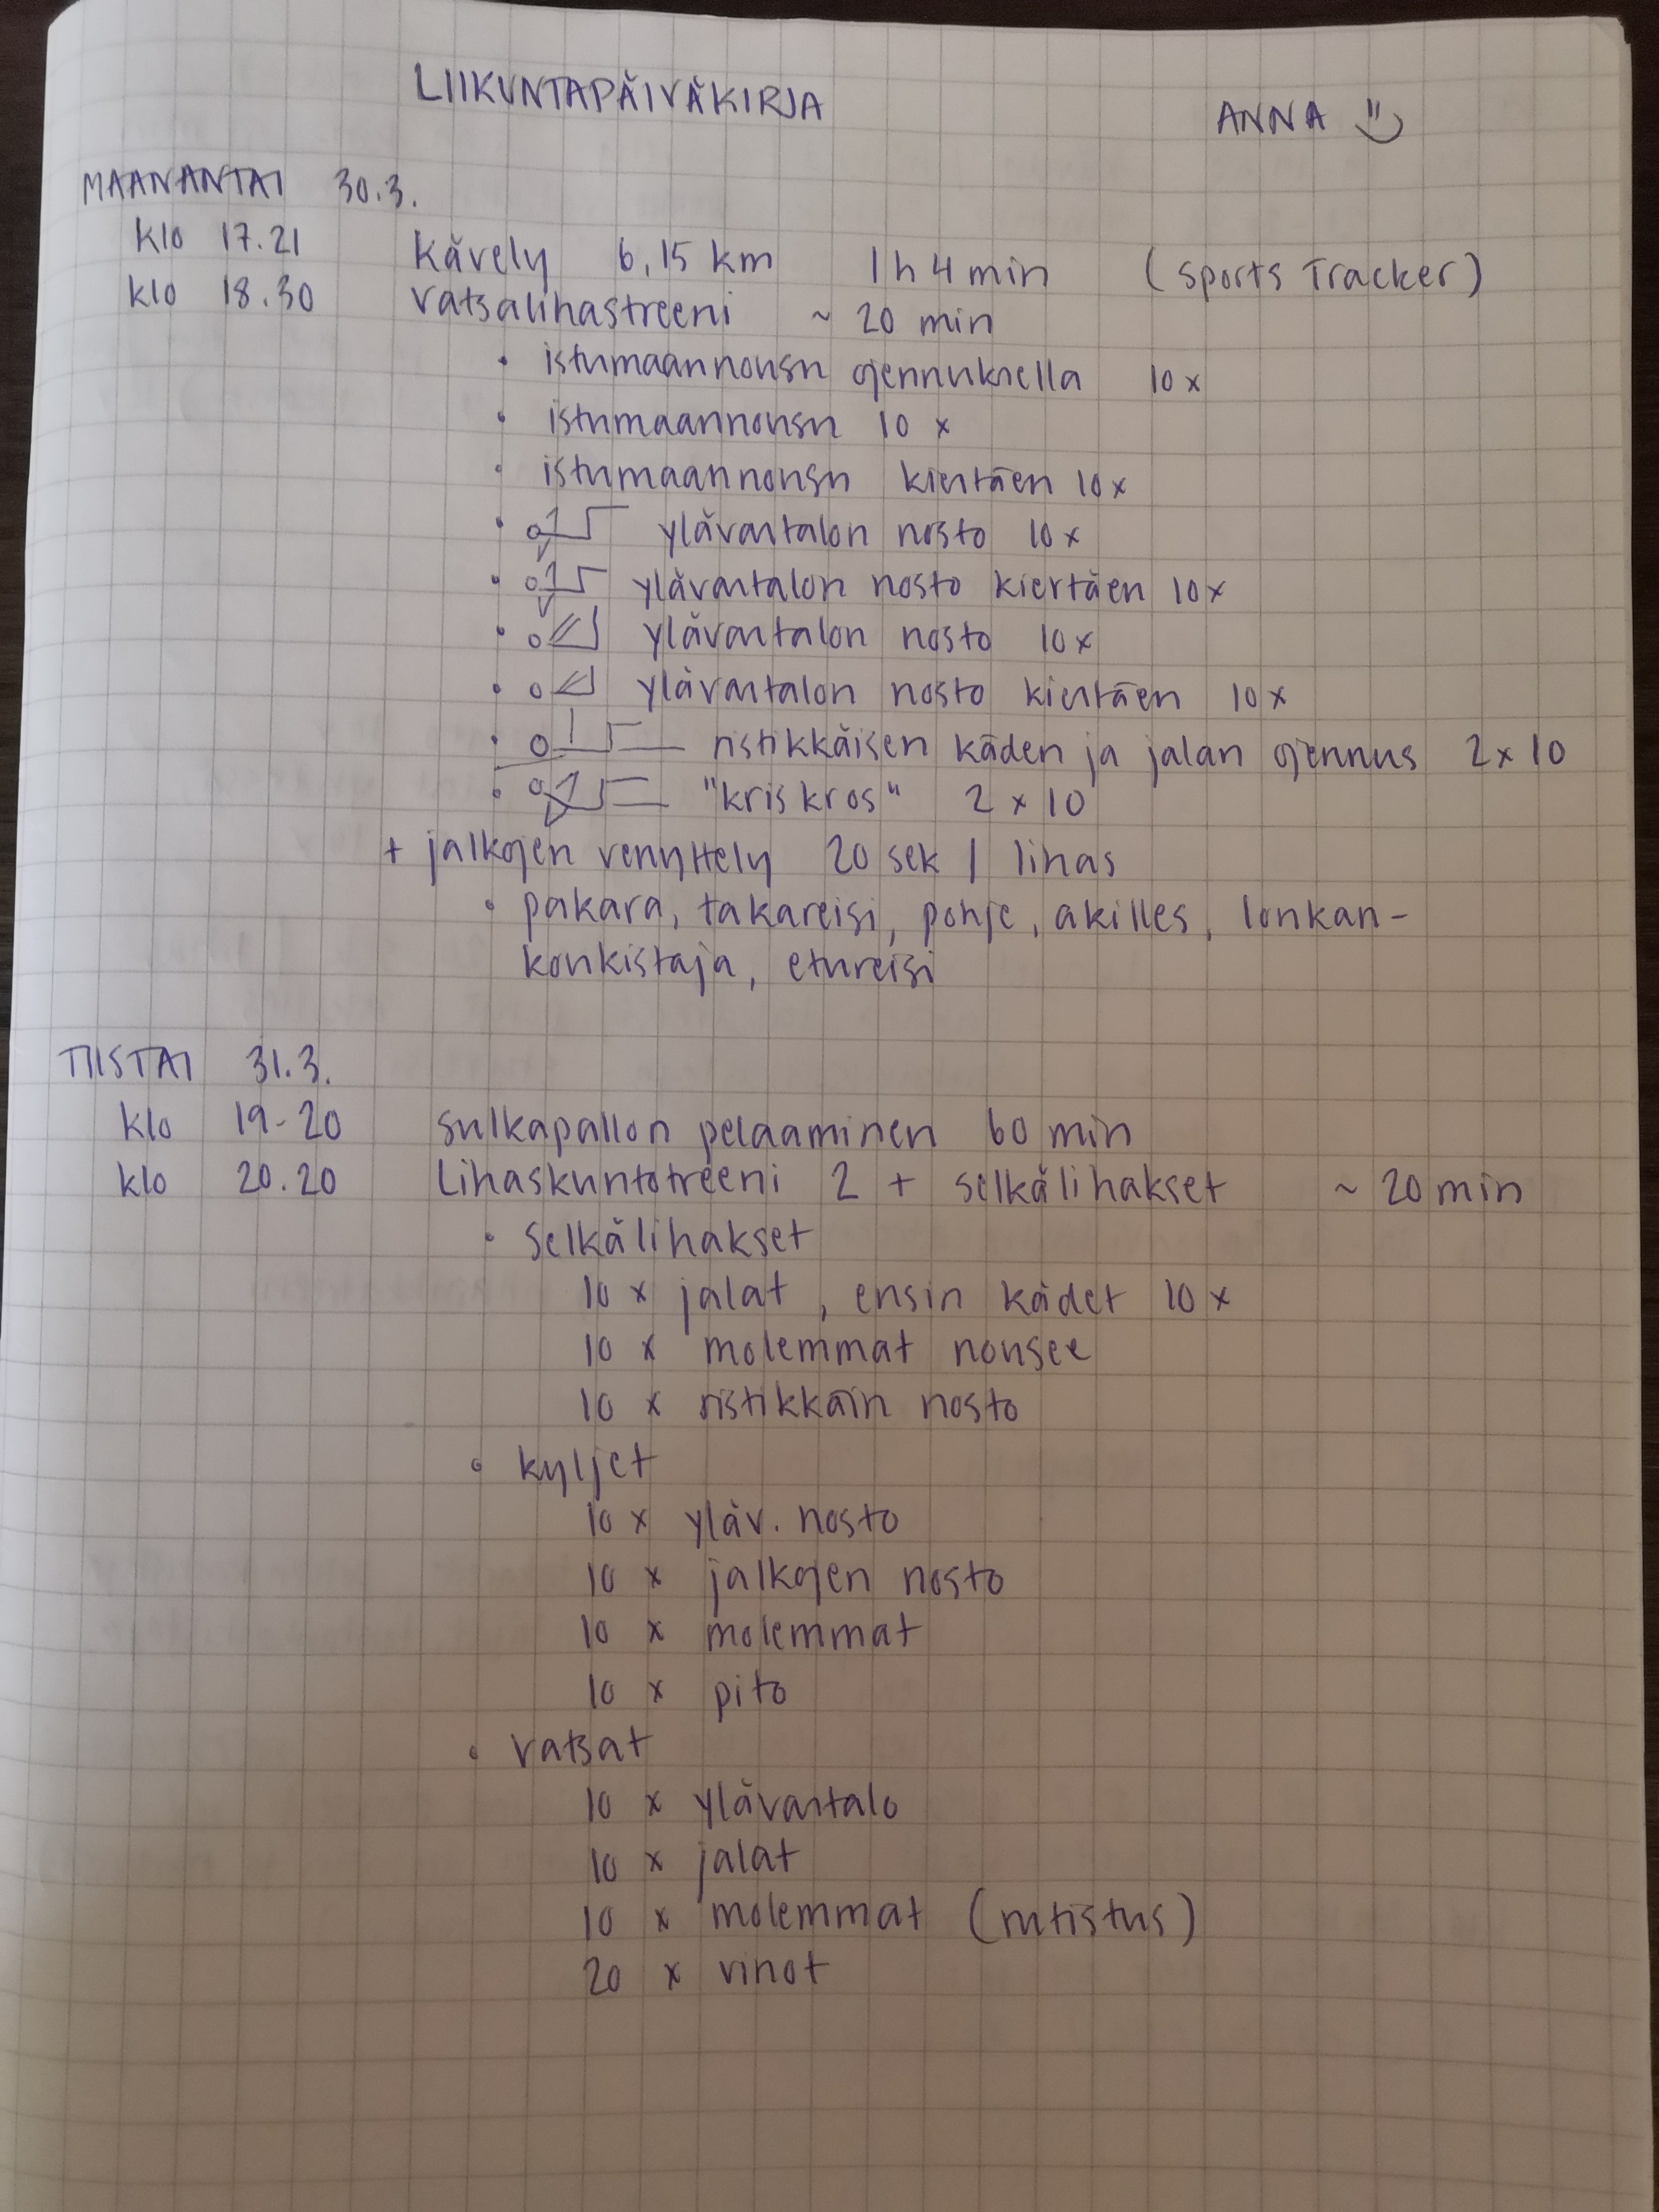 LIIKUNTAPÄIVÄKIRJA ANNA
MAANANTAI 30.3.
klo 17.21 Kävely 6,15 km 1h 4min (Sports Tracker)
klo 18.30 Vatsalihastreeni ~ 20 min
• istumaannousu ojennuksella 10x
• istumaannousu 10 x
• istumaannousu kiertäen 10x
• ylävartalon nosto 10x
• ylävartalon nosto kiertäen 10x
• ylävartalon nosto 10x
• ylävartalon nosto kiertäen 10x
• ristikkäisen käden ja jalan ojennus 2x10
• "kris kros" 2 x 10
+ jalkojen venyttely 20 sek / lihas
• pakara, takareisi, pohje, akilles, lonkan-
koukistaja, etureisi
TIISTAI 31.3.
klo 19-20 Sulkapallon pelaaminen 60 min
klo 20.20 Lihaskuntotreeni 2 + selkälihakset ~ 20 min
• Selkälihakset
10 x jalat, ensin kädet 10 x
10 x molemmat nousee
10 x ristikkäin nosto
• kyljet
10 x yläv. nosto
10 x jalkojen nosto
10 x molemmat
10 x pito
• vatsat
10 x ylävartalo
10 x jalat
10 x molemmat (rutistus)
20 x vinot